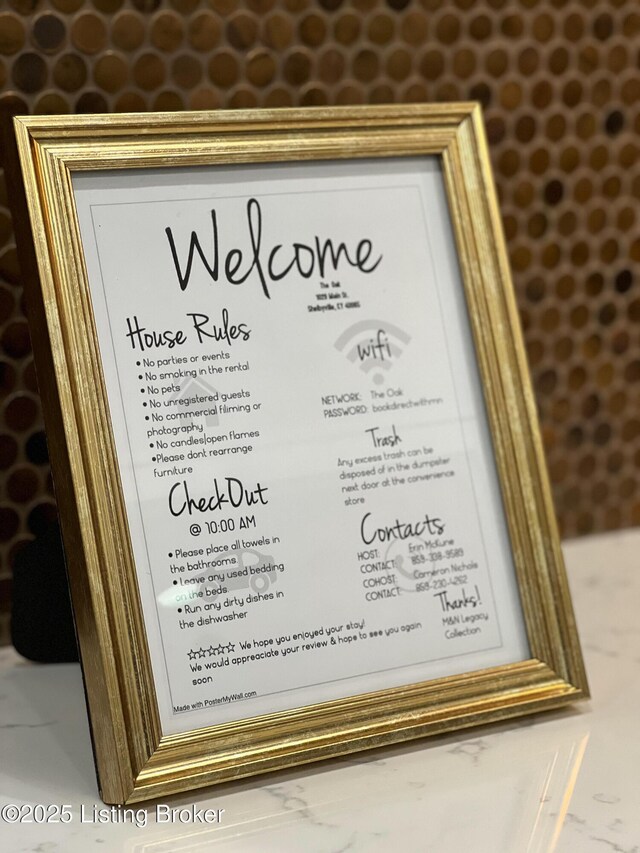 Welcome
The Oak
Shelbyville, KY
House Rules
• No parties or events
• No smoking in the rental
• No pets
• No unregistered guests
• No commercial filiming or
photography
• No candles/open flames
•Please dont rearrange
furniture
CheckOut
@ 10:00 AM
• Please place all towels in
the bathrooms
• Leave any used bedding
on the beds
• Run any dirty dishes in
the dishwasher
wifi
NETWORK: The Oak
PASSWORD: bookdirectwithmn
Trash
Any excess trash can be
disposed of in the dumpster
next door at the convenience
store
Contacts
HOST: Erin McKune
CONTACT: 859-308-9589
COHOST: Cameron Nichols
CONTACT: 859-230-4252
Thanks!
M&N Legacy
Collection
We hope you enjoyed your stay!
We would appreaciate your review & hope to see you again
soon
Made with PosterMyWall.com
©2025 Listing Broker